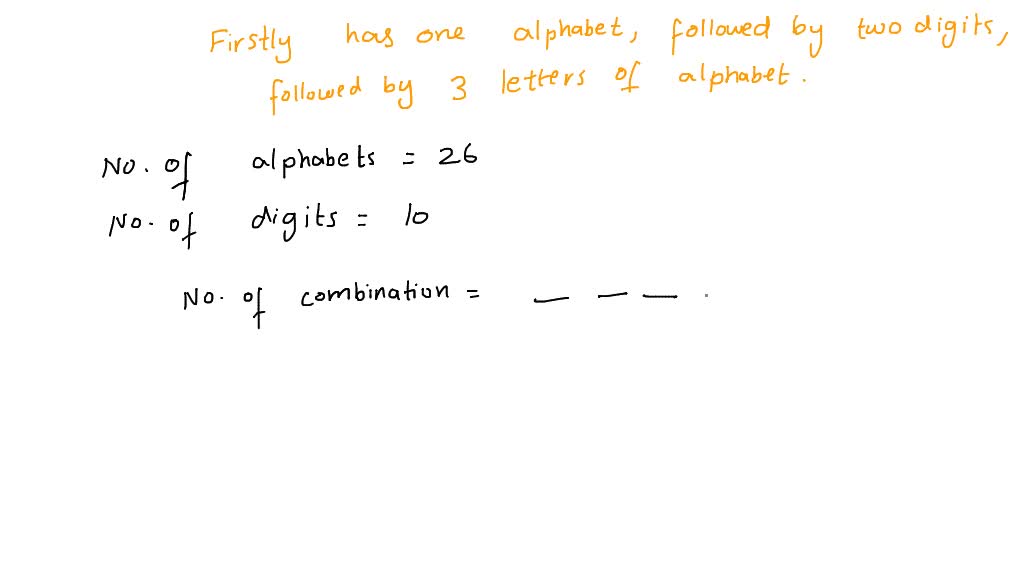 Firstly has one alphabet, followed by two digits,
followed by 3 letters of alphabet.
No. of alphabets = 26
No. of digits = 10
No. of combination = _ _ _